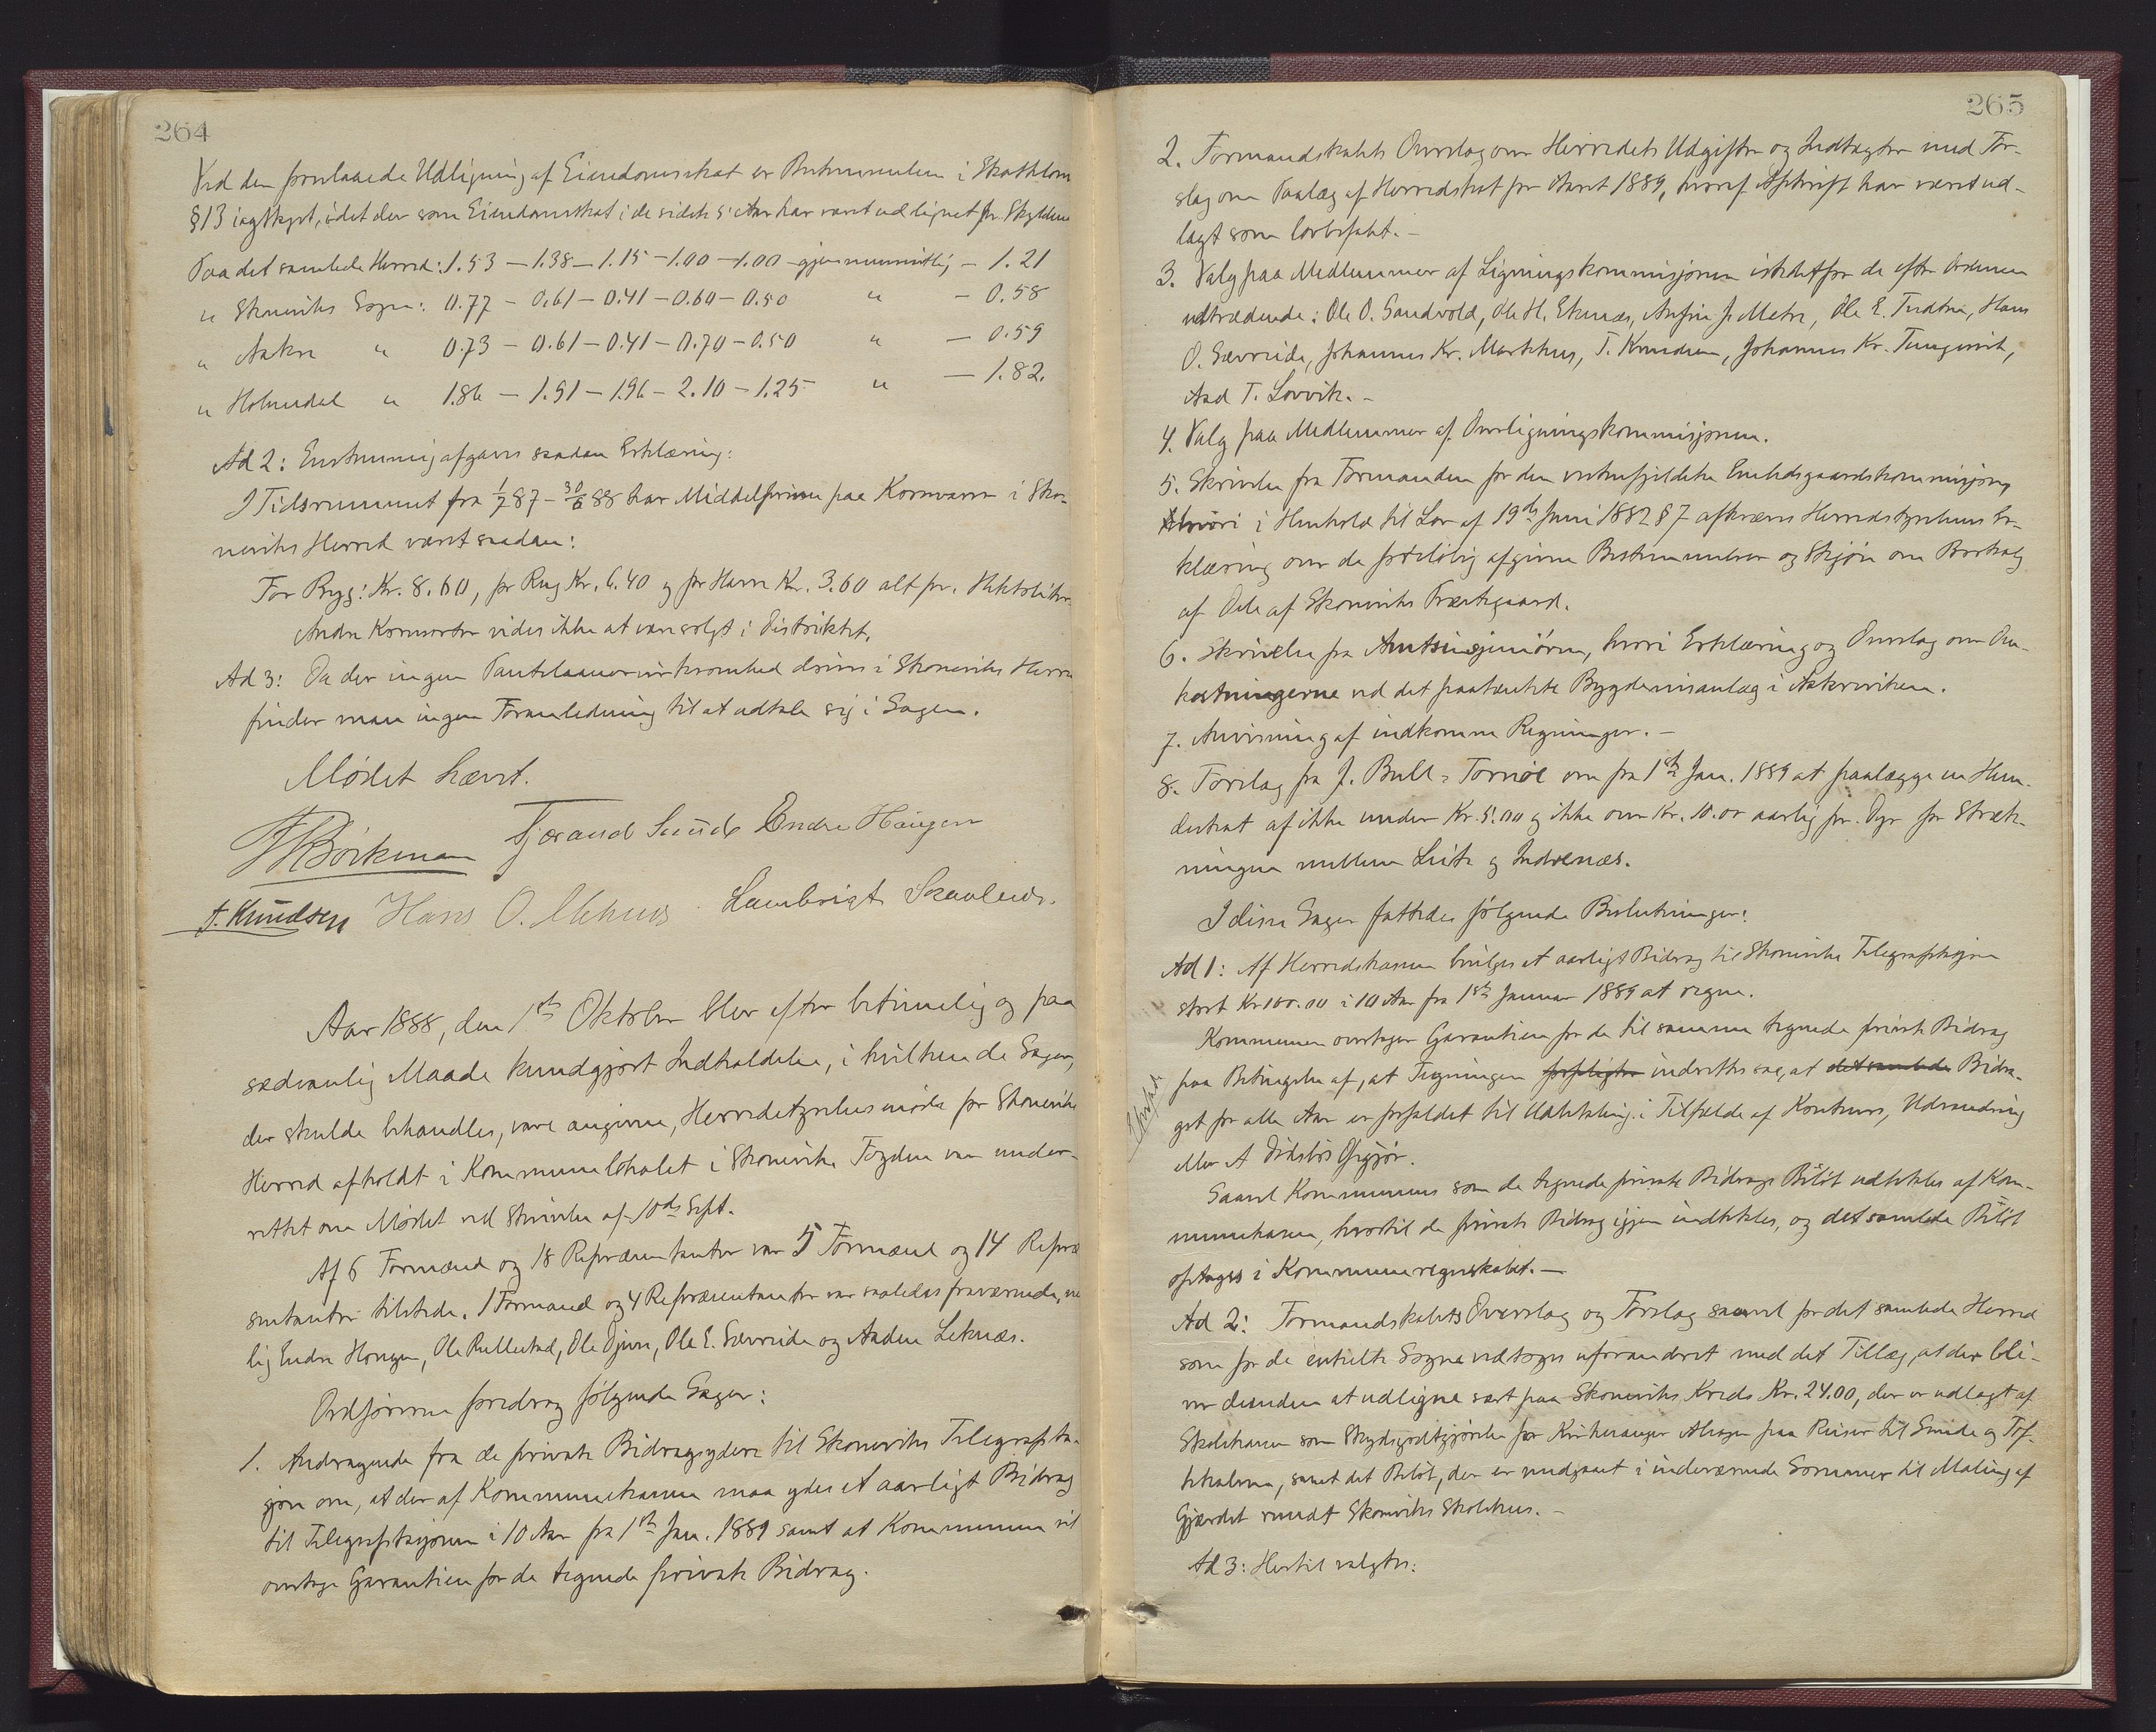 264
Ved den foreslaaede Udligning af Eiendomsskat er Bestemmelsen i Skatteloven
§ 13 iagttaget, idet der som Eiendomsskat i de sidste 5 Aar har været udlignet pr. Skylddaler
Paa det samlede Herred: 1.53 – 1.38 – 1.15 – 1.00 – 1.00 – gjennemsnitlig – 1.21
" Skoneviks Sogn: 0.77 – 0.61 – 0.41 – 0.60 – 0.50 " – 0.58
" Aakre " 0.73 – 0.61 – 0.41 – 0.70 – 0.50 " – 0.59
" Holmedal " 1.86 – 1.91 – 1.96 – 2.10 – 1.25 " – 1.82.
Ad 2: Enstemmig afgaves saadan Erklæring:
I Tidsrummet fra 1/7 87 – 30/6 88 har Middelprisen paa Kornvarer i Sko-
neviks Herred været saadan:
For Byg: Kr. 8.60, for Rug Kr. 6.40 og for Havre Kr. 3.60 alt pr. Hektoliter.
Andre Kornsorter vides ikke at være solgt i Distriktet.
Ad 3: Da der ingen Pantelaanervirksomhed drives i Skoneviks Herred
finder man ingen Foranledning til at udtale sig i Sagen.
Mødet hævet.
Børkman Tjerand Sunde Endre Haugen
T. Knudsen Hans O. Mehus Lambrigt Skaalnes.
Aar 1888, den 1ste Oktober blev efter betimelig og paa
sædvanlig Maade kundgjort Indkaldelse, i hvilken de Sager,
der skulde behandles, vare angivne, Herredstyrelsesmøde for Skoneviks
Herred afholdt i Kommunelokalet i Skonevik. Fogden var under-
rettet om Mødet ved Skrivelse af 10de Sept.
Af 6 Formænd og 18 Repræsentanter var 5 Formænd og 14 Repræ
sentanter tilstede. 1 Formand og 4 Repræsentanter var saaledes fraværende, nem
lig Endre Haugen, Ole Rullestad, Ole Djuve, Ole E. Sævreide og Anders Leknæs.
Ordføreren foredrog følgende Sager:
1. Andragende fra de private Bidragsydere til Skoneviks Telegrafsta-
sjon om, at der af Kommunekassen maa ydes et aarligt Bidrag
til Telegrafstasjonen i 10 Aar fra 1ste Jan. 1889 samt at Kommunen vil
overtage Garantien for de tegnede private Bidrag.
265
2. Formandskabets Overslag over Herredets Udgifter og Indtægter med For-
slag om Paalæg af Herredsskat for Aaret 1889, hvoraf Afskrift har været ud-
lagt som lovbefalet. –
3. Valg paa Medlemmer af Ligningskommisjonen istedetfor de efter Ordenen
udtrædende: Ole O. Sandvold, Ole H. Eknæs, Anfin J. Metre, Ole E. Tindtra, Hans
O. Sævreide, Johannes Kr. Markhus, T. Knudsen, Johannes Kr. Tungesvik,
And T. Lovvik. –
4. Valg paa Medlemmer af Overligningskommisjonen.
5. Skrivelse fra Formanden for den vestenfjeldske Embedsgaardskommisjon,
hvori i Henhold til Lov af 19de Juni 1882 § 7 afkræves Herredstyrelsens Er-
klæring over de foreløbig afgivne Bestemmelser og Skjøn om Bortsalg
af Dele af Skoneviks Prestegaard.
6. Skrivelse fra Amtsingeniøren, hvori Erklæring og Overslag over Om-
kostningerne ved det paatænkte Bygdeveisanlæg i Aakreviken.
7. Anvisning af indkomne Regninger. –
8. Forslag fra J. Bull-Tornøe om fra 1ste Jan. 1889 at paalægge en Hun-
deskat af ikke under Kr. 5.00 og ikke over Kr. 10.00 aarlig pr. Dyr for Stræk-
ningen mellem Leite og Indrenæs.
I disse Sager fattedes følgende Beslutninger:
Ad 1: Af Herredskassen bevilges et aarligt Bidrag til Skoneviks Telegrafstasjon
stort Kr 100.00 i 10 Aar fra 1ste Januar 1889 at regne.
Kommunen overtager Garantien for de til samme tegnede private Bidrag
paa Betingelse af, at Tegningen forpligter indrettes saa, at det samlede Bidra-
get for alle Aar er forfaldet til Udbetaling i Tilfælde af Konkurs, Udvandring
eller et Dødsbos Opgjør.
Saavel Kommunens som de tegnede private Bidrags Beløb udbetales af Kom-
munekassen, hvortil de private Bidrag igjen indbetales, og det samlede Beløb
optages i Kommuneregnskabet. –
Ad 2: Formandskabets Overslag og Forslag saavel for det samlede Herred
som for de enkelte Sogne vedtoges uforandret med det Tillæg, at der bli-
ver desuden at udligne sært paa Skoneviks Kreds Kr. 24.00, der er udlagt af
Skolekassen som Skydsgodtgjørelse for Kirkesanger Alsager paa Reiser til Emide og Tof-
tekalven, samt det Beløb, der er medgaaet i indeværende Sommer til Maling af
Gjærdet rundt Skoneviks Skolehus. –
Ad 3: Hertil valgtes: